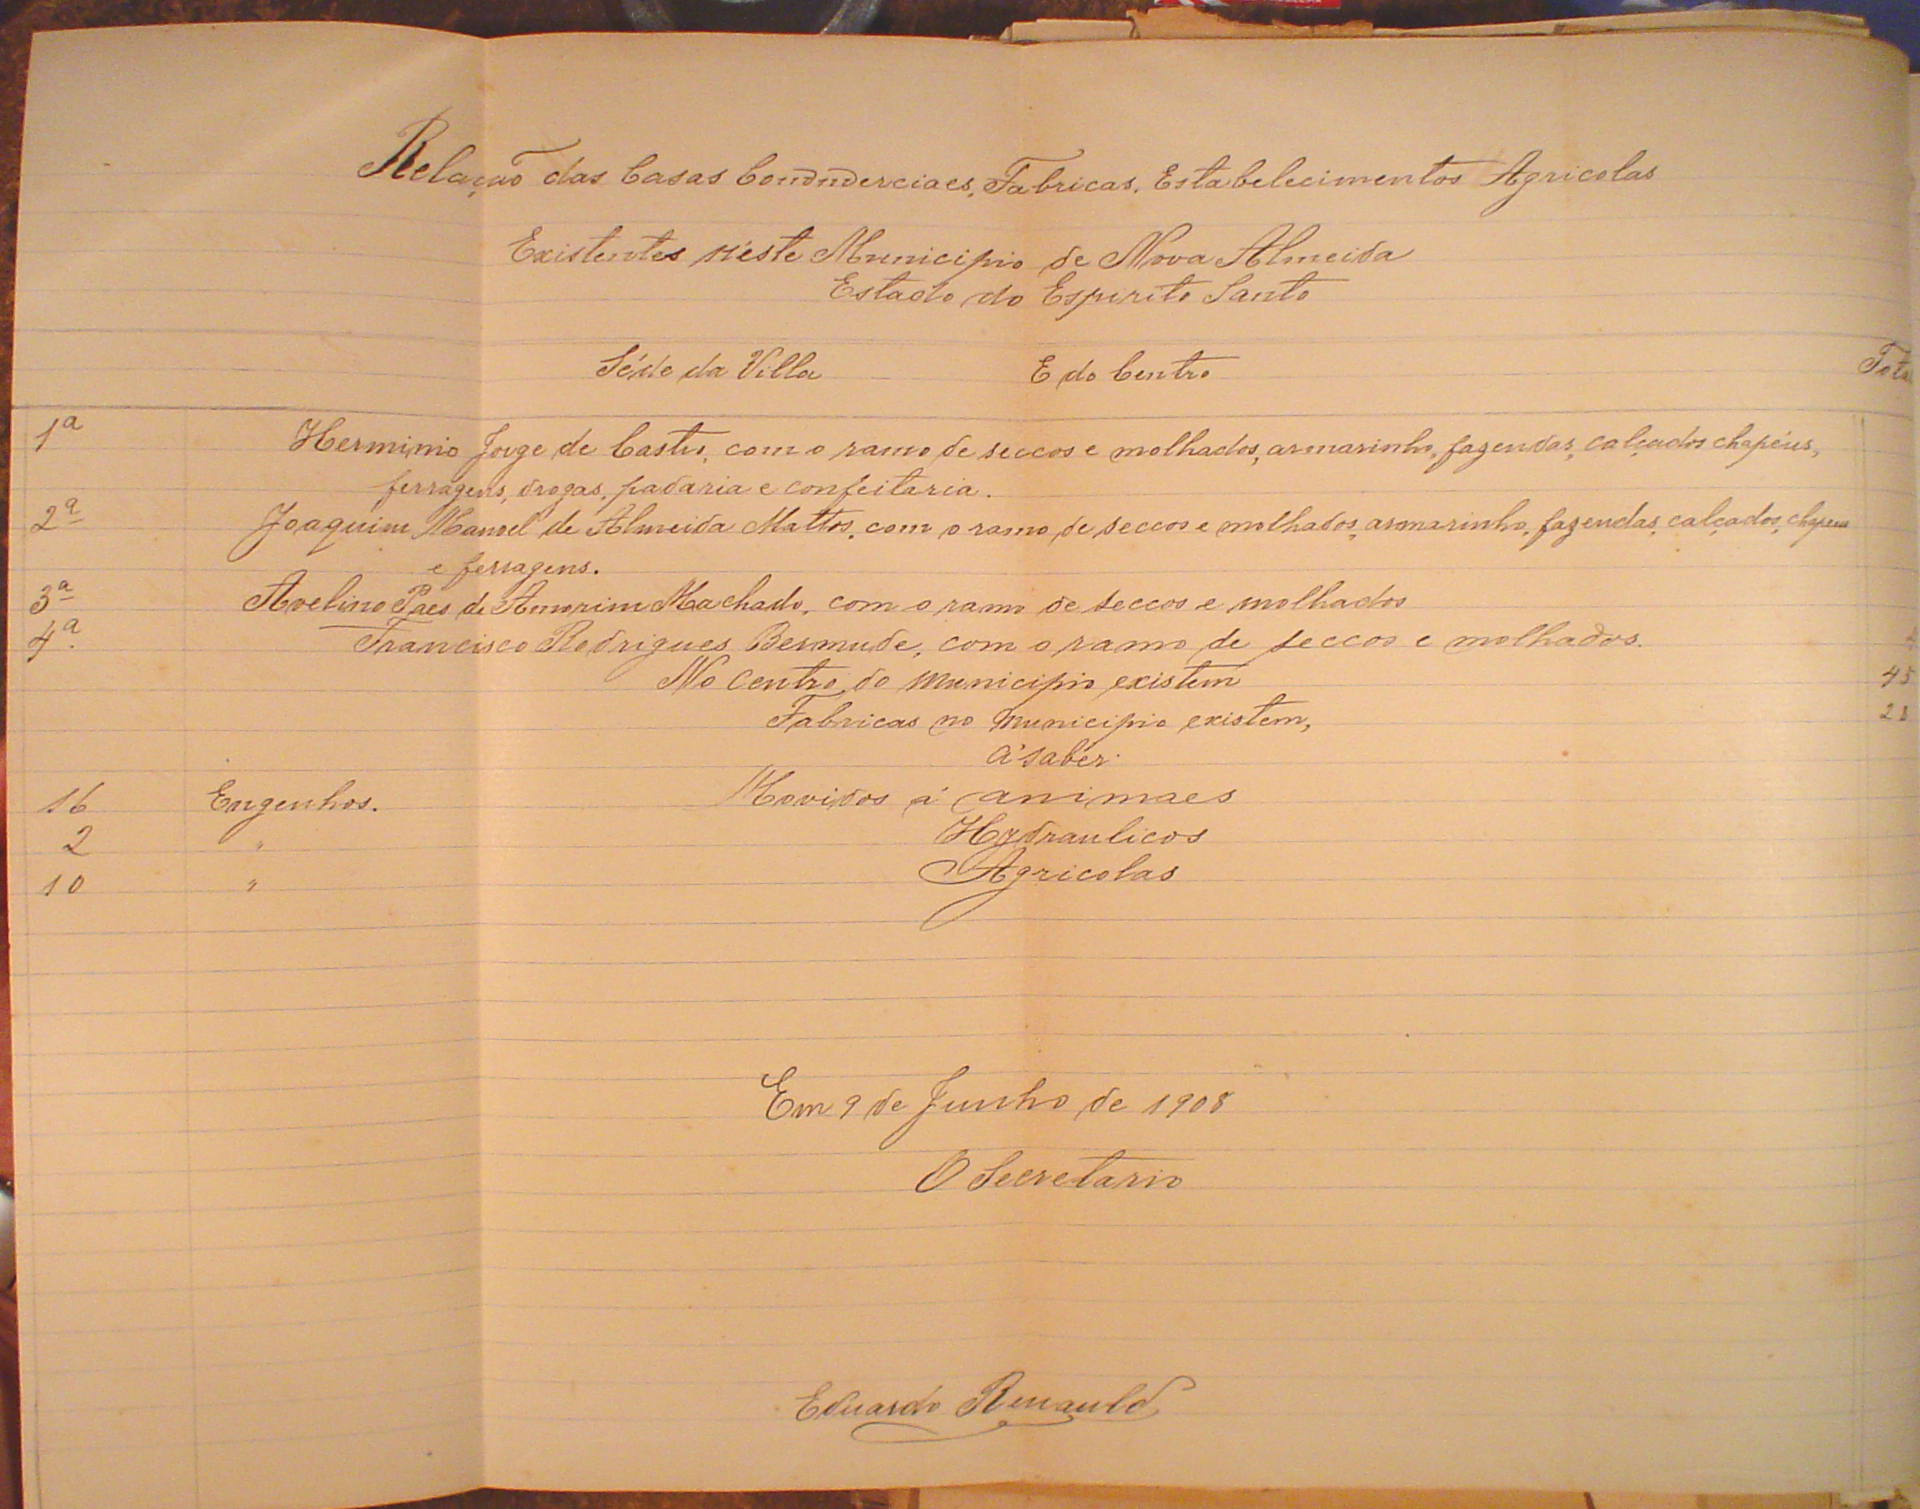 Relação das Casas Commerciaes, Fabricas, Estabelecimentos Agricolas
Existentes n'éste Municipio de Nova Almeida
Estado do Espirito Santo
Séde da Villa E do Centro Tota
1ª Herminio Jorge de Castro, com o ramo de seccos e molhados, armarinho, fazendas, calçados chapéus,
ferragens, drogas, padaria e confeitaria.
2ª Joaquim Manoel de Almeida Mattos, com o ramo de seccos e molhados, armarinho, fazendas, calçados, chapeus
e ferragens.
3ª Avelino Paes de Amorim Machado, com o ramo de seccos e molhados
4ª Francisco Rodrigues Bermude, com o ramo de seccos e molhados.
No Centro do Municipio existem 45
Fabricas no Municipio existem, 28
á saber
16 Engenhos. Movidos á animaes
2 " Hydraulicos
10 " Agricolas
Em 9 de Junho de 1908
O Secretario
Eduardo Renauld